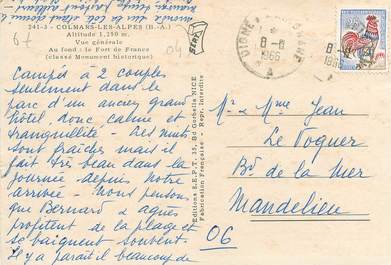 241-3 - COLMARS-LES-ALPES (B.-A.)
Altitude 1.250 m.
Vue générale
Au fond : le Fort de France
(classé Monument historique)
67
04
Campés à 2 couples
seulement dans le
parc d'un ancien grand
hôtel. Donc calme et
tranquillité - Les nuits
sont fraîches mais il
fait très beau dans la
journée depuis notre
arrivée - Nous pensons
que Bernard & agnès
profitent de la plage et
se baignent souvent.
Il y a parait il beaucoup de
Editions S.E.P.T. 35, Bd Garbella NICE
Fabrication Française - Repr. Interdite
DIGNE
8-8
1966
8-8
1966
M. & Mme Jean
Le Foquer
Bd de la Mer
Mandelieu
06